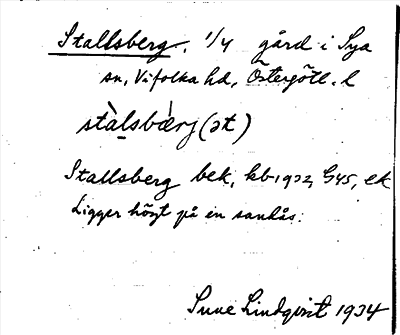 Stallsberg. 1/4 gård i Sya
sn, Vifolka hd, Östergötl. l
stàlsbærj (ət)
Stallsberg bek, kb 1932, G45, ek
Ligger högt på en sandås.
Sune Lindqvist 1934